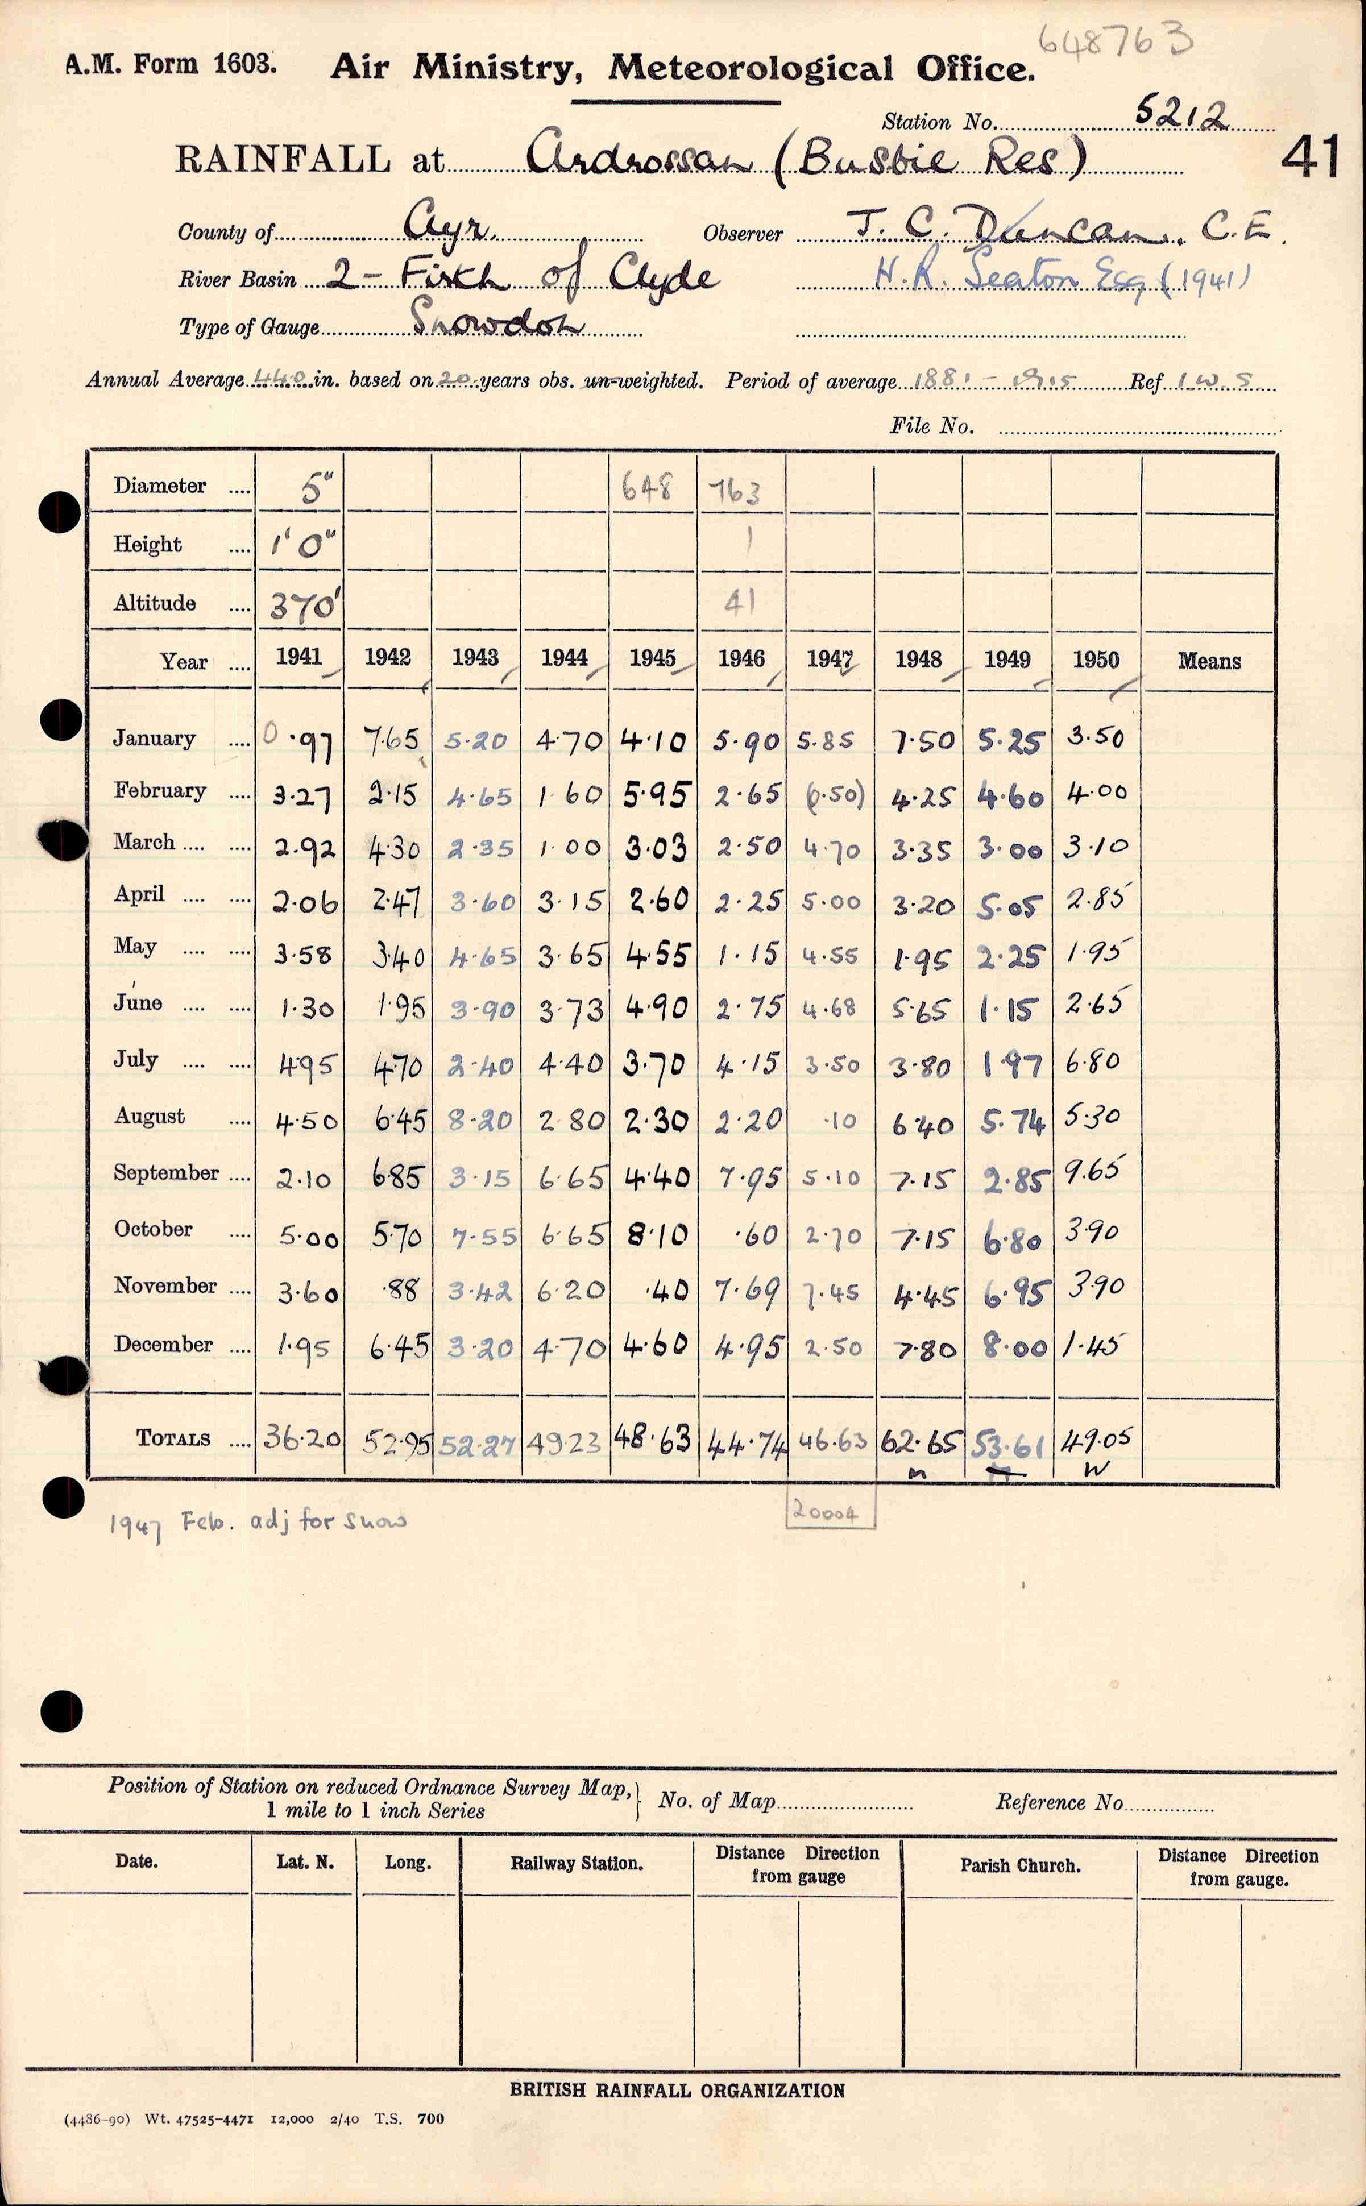 648763
A.M. Form 1603. Air Ministry, Meteorological Office.
Station No. 5212
RAINFALL at Ardrossan (Busbie Res) 41
County of Ayr. Observer J. C. Duncan. C.E.
River Basin 2 - Firth of Clyde H.R. Seaton Esq (1941)
Type of Gauge Snowdon
Annual Average 44.0 in. based on 20 years obs. un-weighted. Period of average 1881 - 1915 Ref I.W.S
File No.
Diameter .... 5" 648 763
Height .... 1' 0" 1
Altitude .... 370' 41
Year .... 1941 1942 1943 1944 1945 1946 1947 1948 1949 1950 Means
January .... 0.97 7.65 5.20 4.70 4.10 5.90 5.85 7.50 5.25 3.50
February .... 3.27 2.15 4.65 1.60 5.95 2.65 (0.50) 4.25 4.60 4.00
March .... .... 2.92 4.30 2.35 1.00 3.03 2.50 4.70 3.35 3.00 3.10
April .... .... 2.06 2.47 3.60 3.15 2.60 2.25 5.00 3.20 5.05 2.85
May .... .... 3.58 3.40 4.65 3.65 4.55 1.15 4.55 1.95 2.25 1.95
June .... .... 1.30 1.95 3.90 3.73 4.90 2.75 4.68 5.65 1.15 2.65
July .... .... 4.95 4.70 2.40 4.40 3.70 4.15 3.50 3.80 1.97 6.80
August .... 4.50 6.45 8.20 2.80 2.30 2.20 .10 6.40 5.74 5.30
September .... 2.10 6.85 3.15 6.65 4.40 7.95 5.10 7.15 2.85 9.65
October .... 5.00 5.70 7.55 6.65 8.10 .60 2.70 7.15 6.80 3.90
November .... 3.60 .88 3.42 6.20 .40 7.69 7.45 4.45 6.95 3.90
December .... 1.95 6.45 3.20 4.70 4.60 4.95 2.50 7.80 8.00 1.45
TOTALS .... 36.20 52.95 52.27 49.23 48.63 44.74 46.63 62.65 53.61 49.05
1947 Feb. adj for snow 20004
Position of Station on reduced Ordnance Survey Map,
1 mile to 1 inch Series } No. of Map Reference No
Date. Lat. N. Long. Railway Station. Distance Direction from gauge Parish Church. Distance Direction from gauge.
BRITISH RAINFALL ORGANIZATION
(4486-90) Wt. 47525-4471 12,000 2/40 T.S. 700